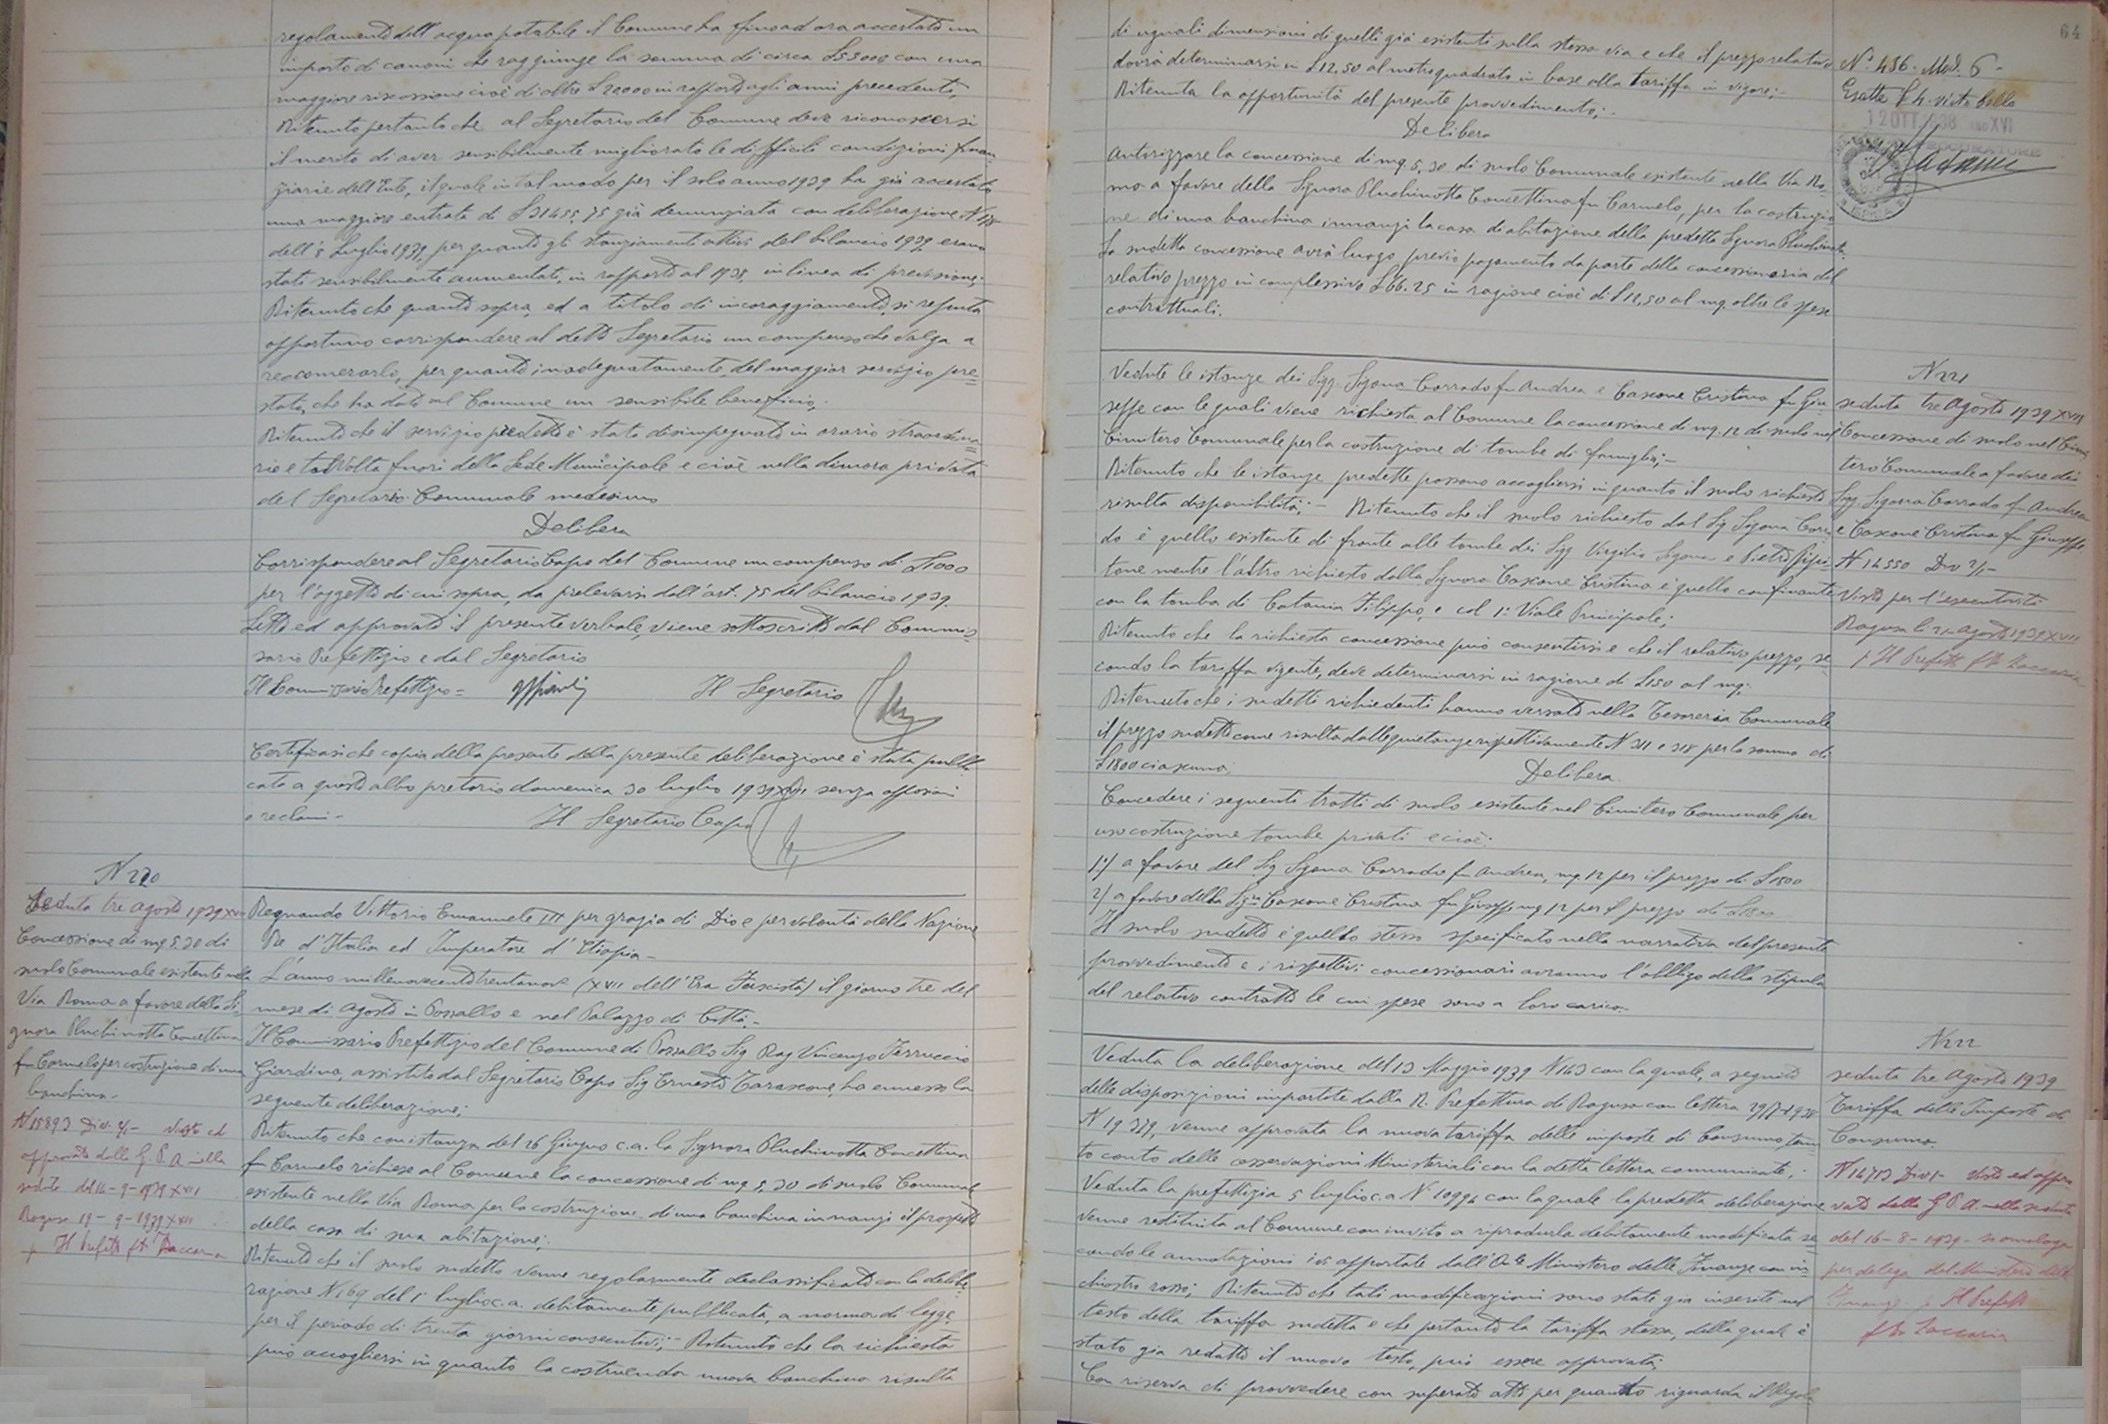 regolamento dell'acqua potabile il Comune ha fino ad ora accertato un
importo di canoni che raggiunge la somma di circa £ 55000 con una
maggiore riscossione cioè di oltre £ 20000 in rapporto agli anni precedenti,
Ritenuto pertanto che al Segretario del Comune deve riconoscersi
il merito di aver sensibilmente migliorato le difficili condizioni finan
ziarie dell'Ente, il quale in tal modo per il solo anno 1939 ha già accertato
una maggiore entrata di £ 31455,75 già denunziata con deliberazione N
dell'8 Luglio 1939, per quanto gli stanziamenti attivi del bilancio 1939 erano
stati sensibilmente aumentati, in rapporto al 1938, in linea di previsione;
Ritenuto che quanto sopra, ed a titolo di incoraggiamento, si reputa
opportuno corrispondere al detto Segretario un compenso che valga a
recomerarlo, per quanto inadeguatamente, del maggior servizio pre=
stato, che ha dato al Comune un sensibile beneficio;
Ritenuto che il servizio predetto è stato disimpegnato in orario straordina
rio e talvolta fuori della Sede Municipale e cioè nella dimora privata
del Segretario Comunale medesimo
Delibera
Corrispondere al Segretario Capo del Comune un compenso di £ 1000
per l'oggetto di cui sopra, da prelevarsi dall'art. 75 del bilancio 1939.
Letto ed approvato il presente verbale, viene sottoscritto dal Commis
sario Prefettizio e dal Segretario
Il Commissario Prefettizio = Il Segretario
Certificasi che copia della presente della presente deliberazione è stata pubbli
cata a questo albo pretorio domenica 30 luglio 1939 XVII senza opposizioni
e reclami -
Il Segretario Capo
N 220
Seduta tre agosto 1939 XVII
Concessione di mq 5.30 di
suolo Comunale esistente nella
Via Roma a favore della Si
gnora Pluchinotta Concettina
fu Carmelo per costruzione di una
banchina -
N 15893 Div. 2/1 - Visto ed
approvato dalla G. P. A. nella
seduta del 16-9-1939 XVII
Ragusa 19-9-1939 XVII
p Il Prefetto fto Zaccaria
Regnando Vittorio Emanuele III per grazia di Dio e per volontà della Nazione
Re d'Italia ed Imperatore d'Etiopia -
L'anno millenovecentotrentanove (XVII dell'Era Fascista) il giorno tre del
mese di agosto in Pozzallo e nel Palazzo di Città, -
Il Commissario Prefettizio del Comune di Pozzallo Sig Rag Vincenzo Ferruccio
Giardina, assistito dal Segretario Capo Sig Ernesto Tarascone, ha emesso la
seguente deliberazione;
Ritenuto che con istanza del 26 Giugno c.a. la Signora Pluchinotta Concettina
fu Carmelo richiese al Comune la concessione di mq 5,30 di suolo Comunale
esistente nella Via Roma per la costruzione di una banchina innanzi il prospetto
della casa di sua abitazione;
Ritenuto che il suolo sudetto venne regolarmente declassificato con la delibe
razione N 169 del 1° luglio c.a. debitamente pubblicata, a norma di legge,
per il periodo di trenta giorni consecutivi; - Ritenuto che la richiesta
può accogliersi in quanto la costruenda nuova banchina risulta
64
di uguali dimensioni di quelli già esistenti sulla stessa via e che il prezzo relativo
dovrà determinarsi in £ 12,50 al metro quadrato in base alla tariffa in vigore; -
Ritenuta la opportunità del presente provvedimento; -
Delibera
Autorizzare la concessione di mq. 5,30 di suolo Comunale esistente nella Via Ro
ma a favore della Signora Pluchinotta Concettina fu Carmelo, per la costruzio
ne di una banchina innanzi la casa di abitazione della predetta Signora Pluchinotta.
La sudetta concessione avrà luogo previo pagamento da parte della concessionaria del
relativo prezzo in complessive £ 66.25 in ragione cioè di £ 12,50 al mq. oltre le spese
contrattuali.
N° 486 - Mod. 6 -
Esatte visto bollo
12 OTT 1938 ANNO XVI
N 221
seduta tre agosto 1939 XVII
Concessione di suolo nel Cimi
tero Comunale a favore dei
Sigg. Sigona Corrado fu Andrea
e Cascone Cristina fu Giuseppe
N 14550 Div 2/1 -
Visto per l'esecutorietà
Ragusa li 21 agosto 1939 XVII
p Il Prefetto fto Zaccaria
Vedute le istanze dei Sigg. Sigona Corrado fu Andrea e Cascone Cristina fu Giu
seppe con le quali viene richiesta al Comune la concessione di mq. 12 di suolo nel
Cimitero Comunale per la costruzione di tombe di famiglia; -
Ritenuto che le istanze predette possono accogliersi in quanto il suolo richiesto
risulta disponibilità; - Ritenuto che il suolo richiesto dal Sig Sigona Corra
do è quello esistente di fronte alle tombe dei Sigg Virgilio Sigona e Pietro
tone mentre l'altro richiesto dalla Signora Cascone Cristina è quello confinante
con la tomba di Catania Filippo, e col 1° Viale Principale;
Ritenuto che la richiesta concessione può consentirsi e che il relativo prezzo, se
condo la tariffa vigente, deve determinarsi in ragione di £ 150 al mq;
Ritenuto che i sudetti richiedenti hanno versato nella Tesoreria Comunale
il prezzo sudetto come risulta dalle quietanze rispettivamente N 311 e 318 per la somma di
£ 1800 ciascuna;
Delibera
Concedere i seguenti tratti di suolo esistente nel Cimitero Comunale per
uso costruzione tombe private e cioè:
1°) a favore del Sig Sigona Corrado fu Andrea, mq. 12 per il prezzo di £ 1800
2) a favore della Sig.ra Cascone Cristina fu Giuseppe mq 12 per il prezzo di £ 1800
Il suolo sudetto è quello stesso specificato nella narrativa del presente
provvedimento e i rispettivi concessionari avranno l'obbligo della stipula
del relativo contratto le cui spese sono a loro carico. -
N 222
seduta tre Agosto 1939
Tariffa delle Imposte di
Consumo
N 14713 Div 1 - Visto ed appro
vato dalla G P A. nella seduta
del 16-8-1939 - si omologa
per delega del Ministero delle
Finanze p Il Prefetto
fto Zaccaria
Veduta la deliberazione del 13 Maggio 1939 N 163 con la quale, a seguito
delle disposizioni impartite dalla R. Prefettura di Ragusa con lettera
N 19379, venne approvata la nuova tariffa delle imposte di Consumo, tenu
to conto delle osservazioni Ministeriali con la detta lettera comunicate;
Veduta la prefettizia 5 luglio c.a N° 10994 con la quale la predetta deliberazione
venne restituita al Comune con invito a riprodurla debitamente modificata se
condo le annotazioni ivi apportate dall'On.le Ministero delle Finanze con in
chiostro rosso; Ritenuto che tali modificazioni sono state già inserite nel
testo della tariffa sudetta e che pertanto la tariffa stessa, della quale è
stato già redatto il nuovo testo, può essere approvata;
Con riserva di provvedere con separato atto per quanto riguarda il Regola